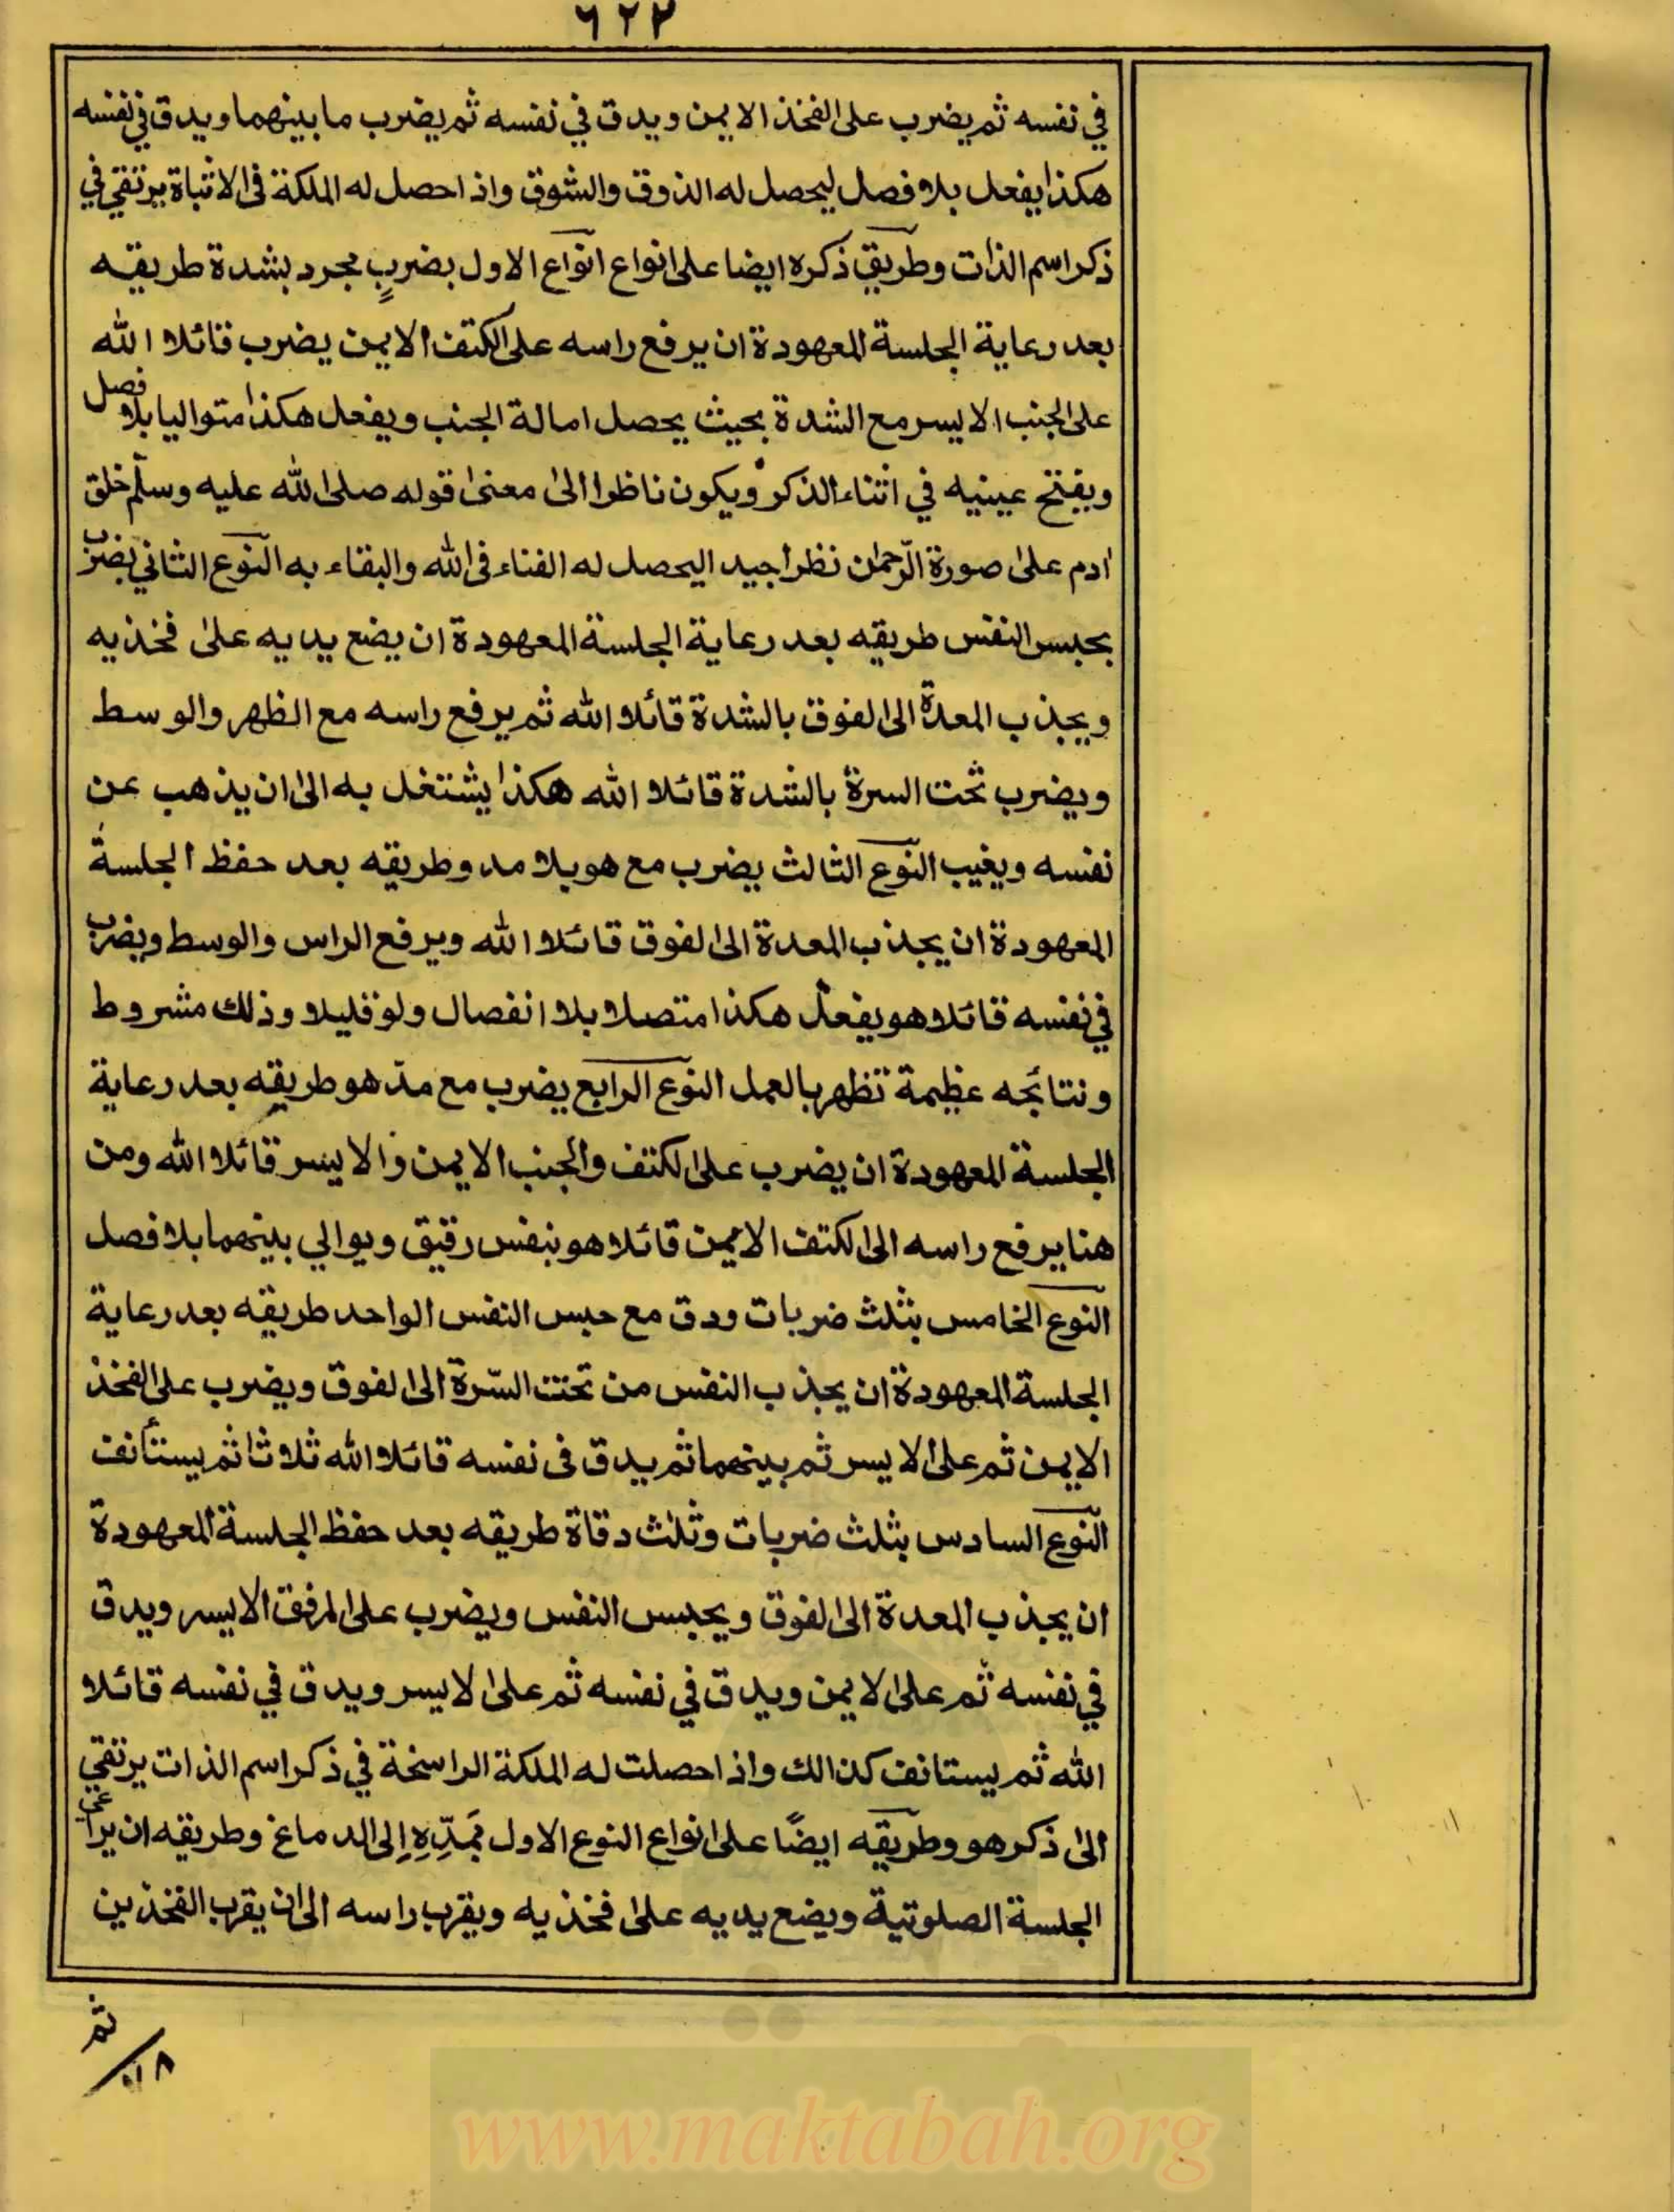 ٦٢٢
في نفسه ثم يضرب على الفخذ الايمن ويدق في نفسه ثم يضرب ما بينهما ويدق في نفسه
هكذا يفعل بلا فصل ليحصل له الذوق والشوق واذا حصل له الملكة فى الاثباة يرتقي في
ذكر اسم الذات وطريق ذكره ايضا على انواع انواع الاول بضربٍ مجرد بشدة طريقه
بعد رعاية الجلسة المعهودة ان يرفع راسه على الكتف الايمن يضرب قائلا الله
على الجنب الايسر مع الشدة بحيث يحصل امالة الجنب ويفعل هكذا متواليا بلا فصل
ويفتح عينيه في اثناء الذكر ويكون ناظرا الى معنى قوله صلى الله عليه وسلم خلق
ادم على صورة الرّحمٰن نظرا جيدا ليحصل له الفناء فى الله والبقاء به النّوع الثاني بضرب
بحبس النفس طريقه بعد رعاية الجلسة المعهودة ان يضع يديه على فخذيه
ويجذب المعدة الى الفوق بالشدة قائلا الله ثم يرفع راسه مع الظهر والوسط
ويضرب تحت السرة بالشدة قائلا الله هكذا يشتغل به الى ان يذهب عن
نفسه ويغيب النّوع الثالث يضرب مع هو بلا مد وطريقه بعد حفظ الجلسة
المعهودة ان يجذب المعدة الى الفوق قائلا الله ويرفع الراس والوسط ويضرب
في نفسه قائلا هو يفعل هكذا متصلا بلا انفصال ولو قليلا وذلك مشروط
ونتائجه عظيمة تظهر بالعمل النوع الرابع يضرب مع مدّ هو طريقه بعد رعاية
الجلسة المعهودة ان يضرب على الكتف والجنب الايمن والايسر قائلا الله ومن
هنا يرفع راسه الى الكتف الايمن قائلا هو بنفس رقيق ويوالي بينهما بلا فصل
النوع الخامس بثلث ضربات ودق مع حبس النفس الواحد طريقه بعد رعاية
الجلسة المعهودة ان يجذب النفس من تحت السّرة الى الفوق ويضرب على الفخذ
الايمن ثم على الايسر ثم بينهما ثم يدق فى نفسه قائلا الله ثلاثا ثم يستأنف
النّوع السادس بثلث ضربات وثلث دقاة طريقه بعد حفظ الجلسة المعهودة
ان يجذب المعدة الى الفوق ويحبس النفس ويضرب على المرفق الايسر ويدق
في نفسه ثم على الايمن ويدق في نفسه ثم على الايسر ويدق في نفسه قائلا
الله ثم يستانف كذالك واذا حصلت له الملكة الراسخة في ذكر اسم الذات يرتقي
الى ذكر هو وطريقه ايضًا على انواع النوع الاول بمَدِّهٖ اِلى الدماغ وطريقه ان يراعى
الجلسة الصلوتية ويضع يديه على فخذيه ويقرب راسه الى ان يقرب الفخذين
ثم
www.maktabah.org